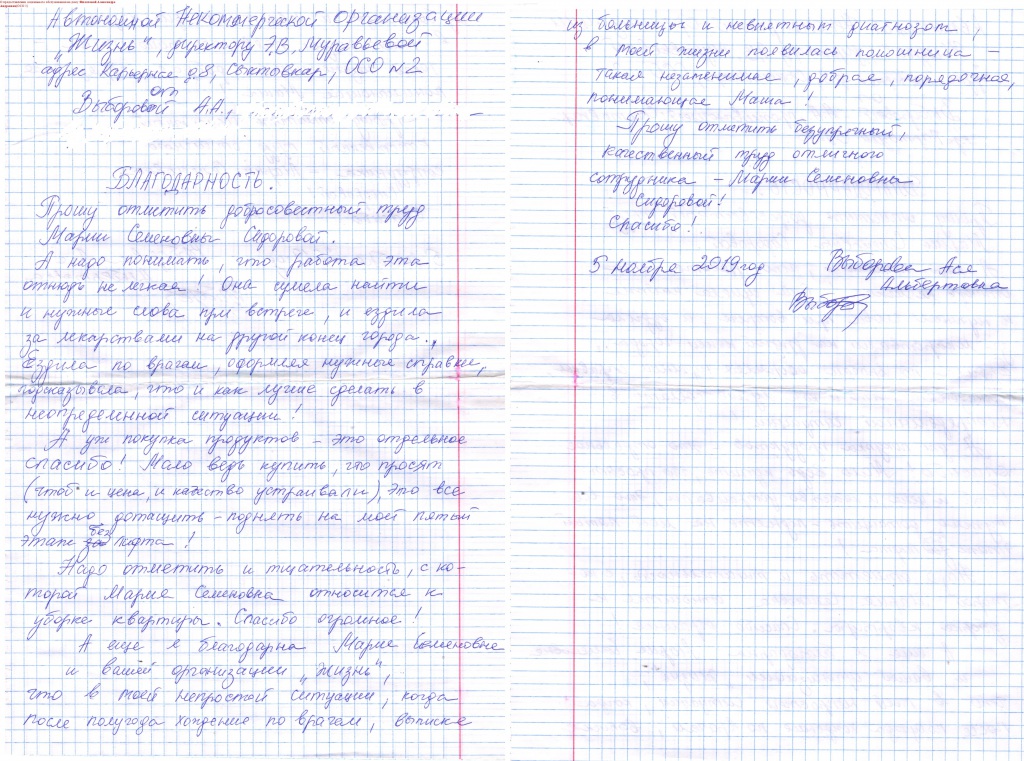 Автономной Некоммерческой организации
„Жизнь“, директору Э.В. Муравьевой
адрес Карьерная д.8, Сыктывкар, ОСО №2
от
Выборовой А.А.,
БЛАГОДАРНОСТЬ.
Прошу отметить добросовестный труд
Марии Семеновны Сидоровой.
А надо понимать, что работа эта
отнюдь не легкая! Она сумела найти
и нужные слова при встрече, и ездила
за лекарствами на другой конец города.,
Ездила по врачам, оформляя нужные справки,
подсказывала, что и как лучше сделать в
неопределенной ситуации!
А уж покупка продуктов – это отдельное
спасибо! Мало ведь купить, что просят
(чтоб и цена, и качество устраивали), это все
нужно дотащить – поднять на мой пятый
этаж без лифта!
Надо отметить и тщательность, с ко-
торой Мария Семеновна относится к
уборке квартиры. Спасибо огромное!
А еще я благодарна Марие Семеновне
и вашей организации „Жизнь“,
что в моей непростой ситуации, когда
после полугода хождение по врачам, выписке
из больницы с невнятным диагнозом,
в моей жизни появилась помошница –
такая незаменимая, добрая, порядочная,
понимающая Маша!
Прошу отметить безупречный,
качественный труд отличного
сотрудника – Марии Семеновна
Сидоровой!
Спасибо!
5 ноября 2019 год
Выборова Ася
Альбертовна